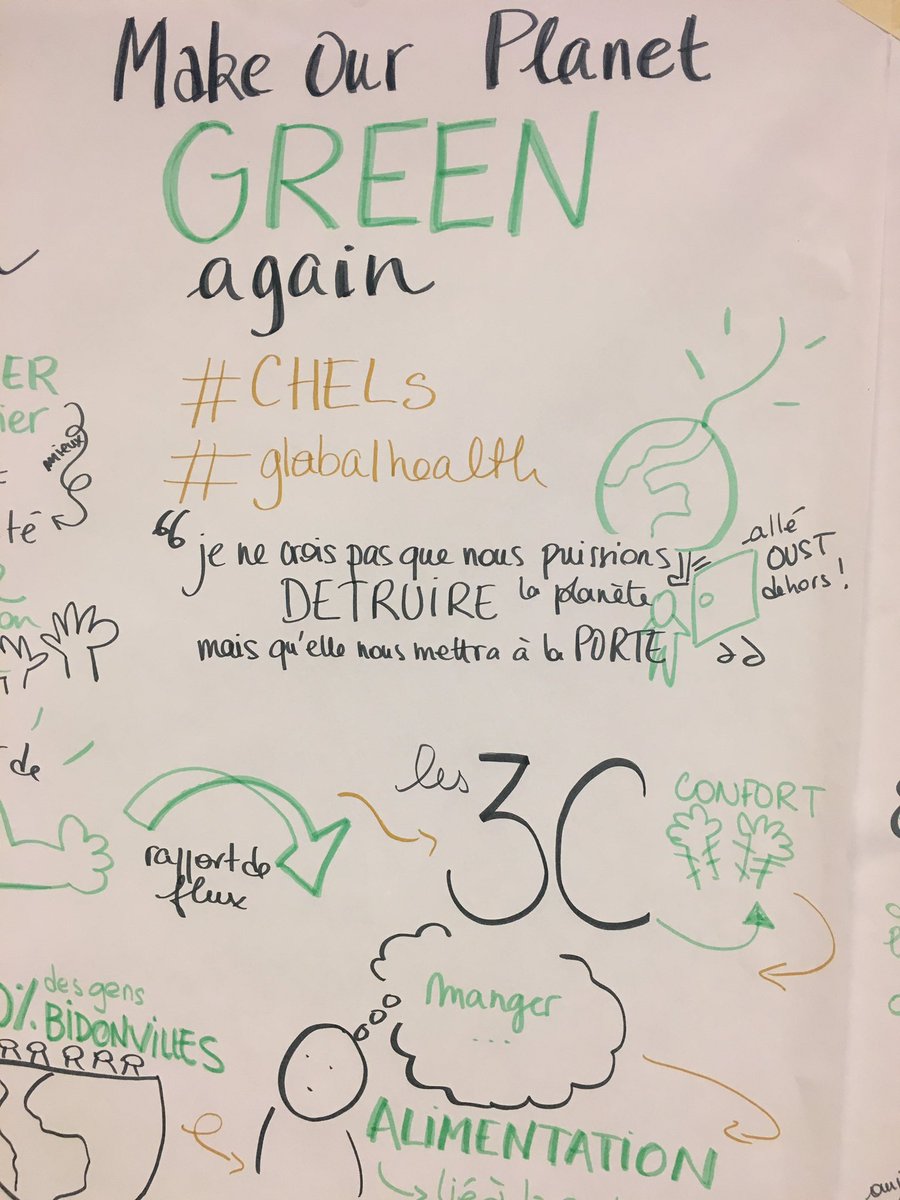 Make Our Planet
GREEN
again
#CHELs
#globalhealth
ER
ier
mieux
té
on
“je ne crois pas que nous puissions
DETRUIRE la planète
mais qu'elle nous mettra à la PORTE
allé
OUST
dehors!
de
rapport de
flux
les 3C
CONFORT
0% des gens
BIDONVILLES
manger
...
ALIMENTATION
lié à la